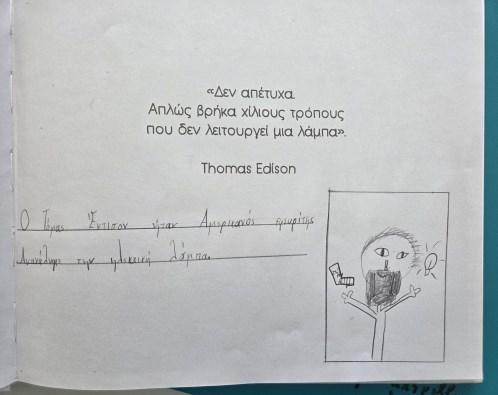 «Δεν απέτυχα.
Απλώς βρήκα χίλιους τρόπους
που δεν λειτουργεί μια λάμπα».
Thomas Edison
Ο Τόμας Έντισον ήταν Αμερικανός
την λάμπα.